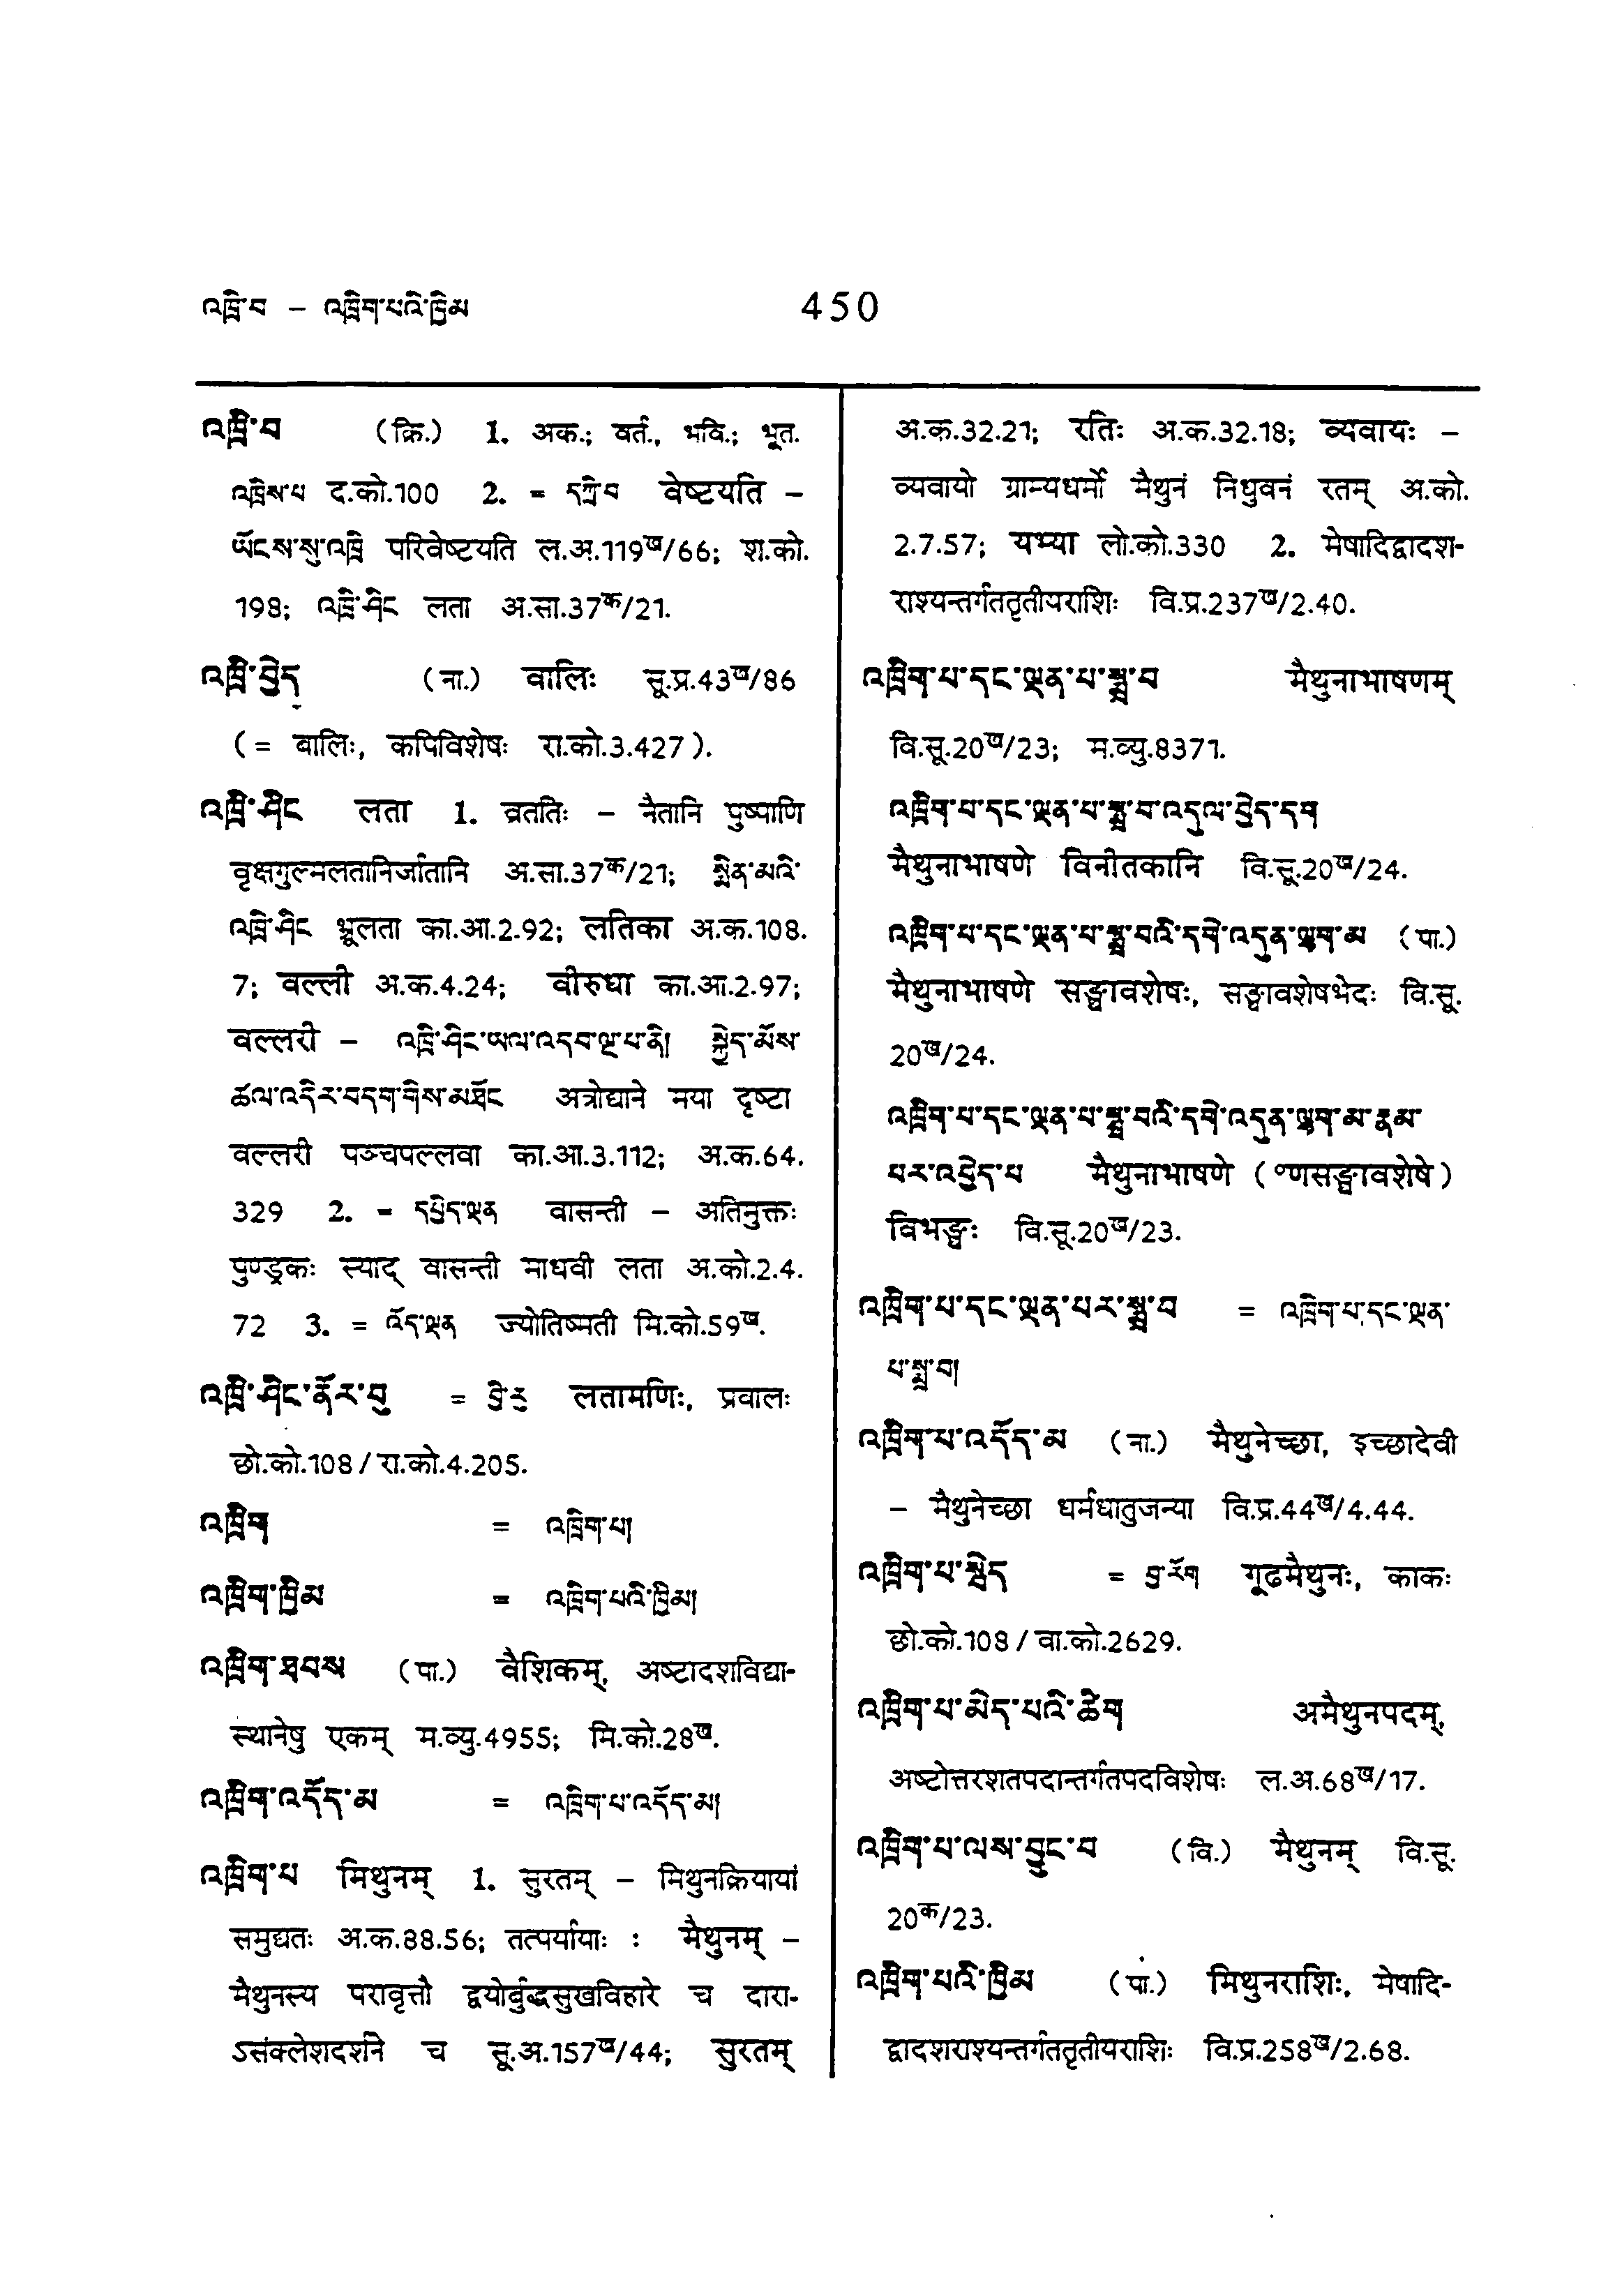 འཁྲི་བ – འཁྲིག་པའི་ཁྱིམ
450
འཁྲི་བ (क्रि.) 1. अक.; वर्त., भवि.; भूत.
འཁྲིས་པ द.को.100 2. = དཀྲི་བ वेष्टयति –
ཡོངས་སུ་འཁྲི परिवेष्टयति ल.अ.119ख/66; श.को.
198; འཁྲི་ཤིང लता अ.सा.37क/21.
འཁྲི་བྱེད (ना.) वालिः सू.प्र.43ख/86
(= बालिः, कपिविशेषः रा.को.3.427).
འཁྲི་ཤིང लता 1. व्रततिः – नैतानि पुष्पाणि
वृक्षगुल्मलतानिर्जातानि अ.सा.37क/21; སྨིན་མའི་
འཁྲི་ཤིང भ्रूलता का.आ.2.92; लतिका अ.क.108.
7; वल्ली अ.क.4.24; वीरुधा का.आ.2.97;
वल्लरी – འཁྲི་ཤིང་ཡལ་འདབ་ལྔ་པ་ནི། སྐྱེད་མོས་
ཚལ་འདིར་བདག་གིས་མཐོང अत्रोद्याने मया दृष्टा
वल्लरी पञ्चपल्लवा का.आ.3.112; अ.क.64.
329 2. = དཔྱིད་ལྡན वासन्ती – अतिमुक्तः
पुण्ड्रकः स्याद् वासन्ती माधवी लता अ.को.2.4.
72 3. = འོད་ལྡན ज्योतिष्मती मि.को.59ख.
འཁྲི་ཤིང་ནོར་བུ = བྱི་རུ लतामणिः, प्रवालः
छो.को.108/रा.को.4.205.
འཁྲིག = འཁྲིག་པ།
འཁྲིག་ཁྱིམ = འཁྲིག་པའི་ཁྱིམ།
འཁྲིག་ཐབས (पा.) वैशिकम्, अष्टादशविद्या-
स्थानेषु एकम् म.व्यु.4955; मि.को.28ख.
འཁྲིག་འདོད་མ = འཁྲིག་པ་འདོད་མ།
འཁྲིག་པ मिथुनम् 1. सुरतम् – मिथुनक्रियायां
समुद्यतः अ.क.88.56; तत्पर्यायाः : मैथुनम् –
मैथुनस्य परावृत्तौ द्वयोर्बुद्धसुखविहारे च दारा-
ऽसंक्लेशदर्शने च सू.अ.157ख/44; सुरतम्
अ.क.32.21; रतिः अ.क.32.18; व्यवायः –
व्यवायो ग्राम्यधर्मो मैथुनं निधुवनं रतम् अ.को.
2.7.57; यभ्या लो.को.330 2. मेषादिद्वादश-
राश्यन्तर्गततृतीयराशिः वि.प्र.237ख/2.40.
འཁྲིག་པ་དང་ལྡན་པ་སྨྲ་བ मैथुनाभाषणम्
वि.सू.20ख/23; म.व्यु.8371.
འཁྲིག་པ་དང་ལྡན་པ་སྨྲ་བ་འདུལ་བྱེད་དག
मैथुनाभाषणे विनीतकानि वि.सू.20ख/24.
འཁྲིག་པ་དང་ལྡན་པ་སྨྲ་བའི་དགེ་འདུན་ལྷག་མ (पा.)
मैथुनाभाषणे सङ्घावशेषः, सङ्घावशेषभेदः वि.सू.
20ख/24.
འཁྲིག་པ་དང་ལྡན་པ་སྨྲ་བའི་དགེ་འདུན་ལྷག་མ་རྣམ་
པར་འབྱེད་པ मैथुनाभाषणे (॰णसङ्घावशेषे)
विभङ्गः वि.सू.20ख/23.
འཁྲིག་པ་དང་ལྡན་པར་སྨྲ་བ = འཁྲིག་པ་དང་ལྡན་
པ་སྨྲ་བ།
འཁྲིག་པ་འདོད་མ (ना.) मैथुनेच्छा, इच्छादेवी
– मैथुनेच्छा धर्मधातुजन्या वि.प्र.44ख/4.44.
འཁྲིག་པ་སྦེད = བྱ་རོག गूढमैथुनः, काकः
छो.को.108/वा.को.2629.
འཁྲིག་པ་མེད་པའི་ཚིག अमैथुनपदम्,
अष्टोत्तरशतपदान्तर्गतपदविशेषः ल.अ.68ख/17.
འཁྲིག་པ་ལས་བྱུང་བ (वि.) मैथुनम् वि.सू.
20क/23.
འཁྲིག་པའི་ཁྱིམ (पा.) मिथुनराशिः, मेषादि-
द्वादशराश्यन्तर्गततृतीयराशिः वि.प्र.258ख/2.68.